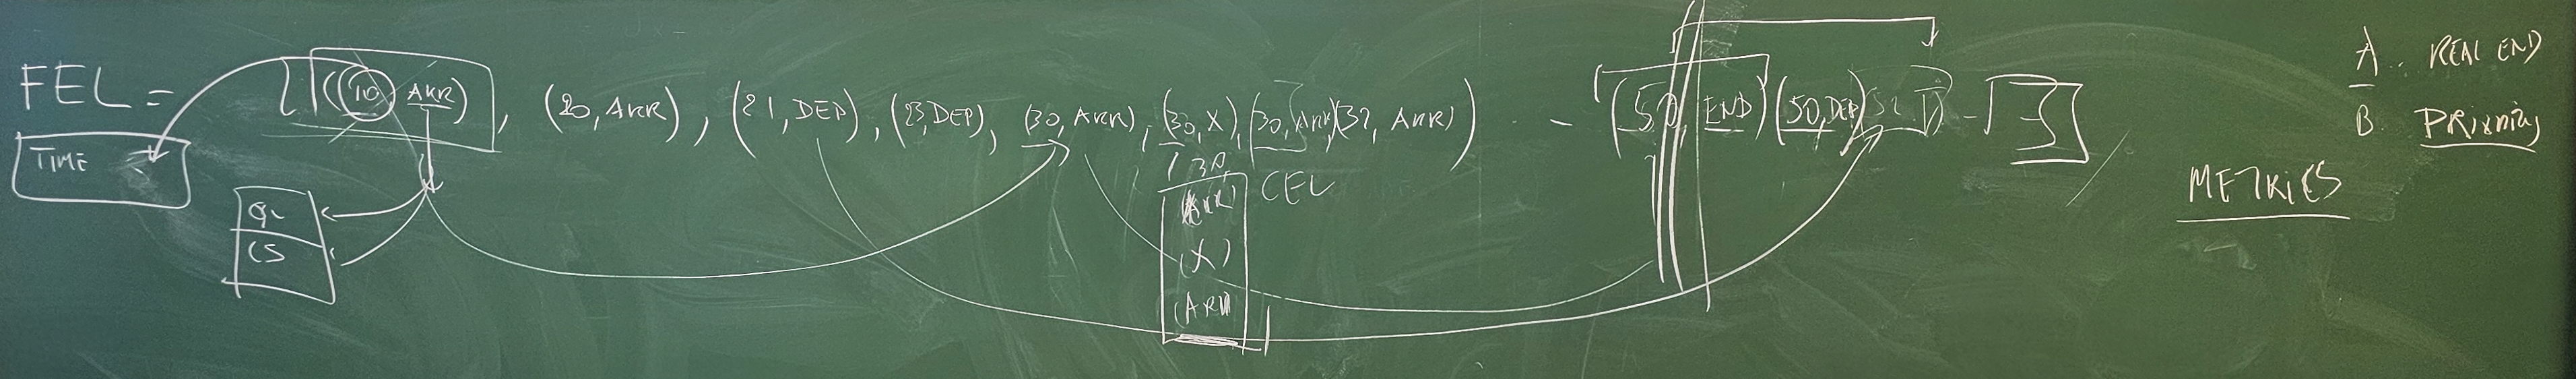 FEL = [((10) ARR), (20, ARR), (21, DEP), (23, DEP), (30, ARR), (30, X), (30, ARR)(32, ARR) - (50, END)(50, DEP) - ]
TIME
QL
CS
30
CEL
(ARR)
(X)
(ARR)
A. REAL END
B. PRIORITY
METRICS